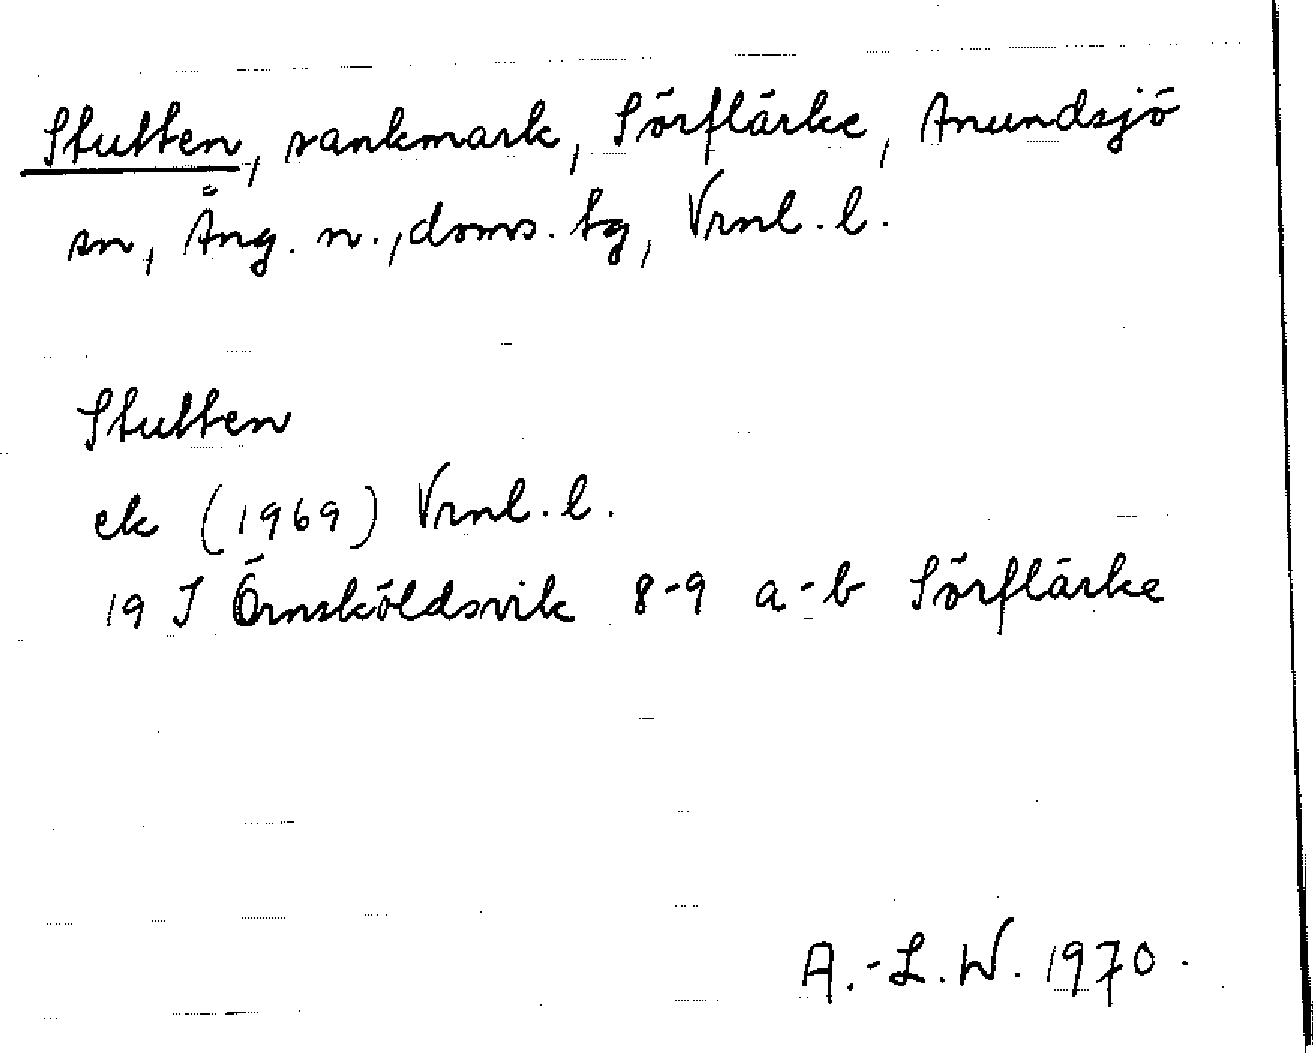 Stutten, sankmark, Sörflärke, Anundsjö
sn, Ång. n., doms. tg, Vrnl. l.
Stutten
ek (1969) Vrnl. l.
19 J Örnsköldsvik 8-9 a-b Sörflärke
A.-L. W. 1970.